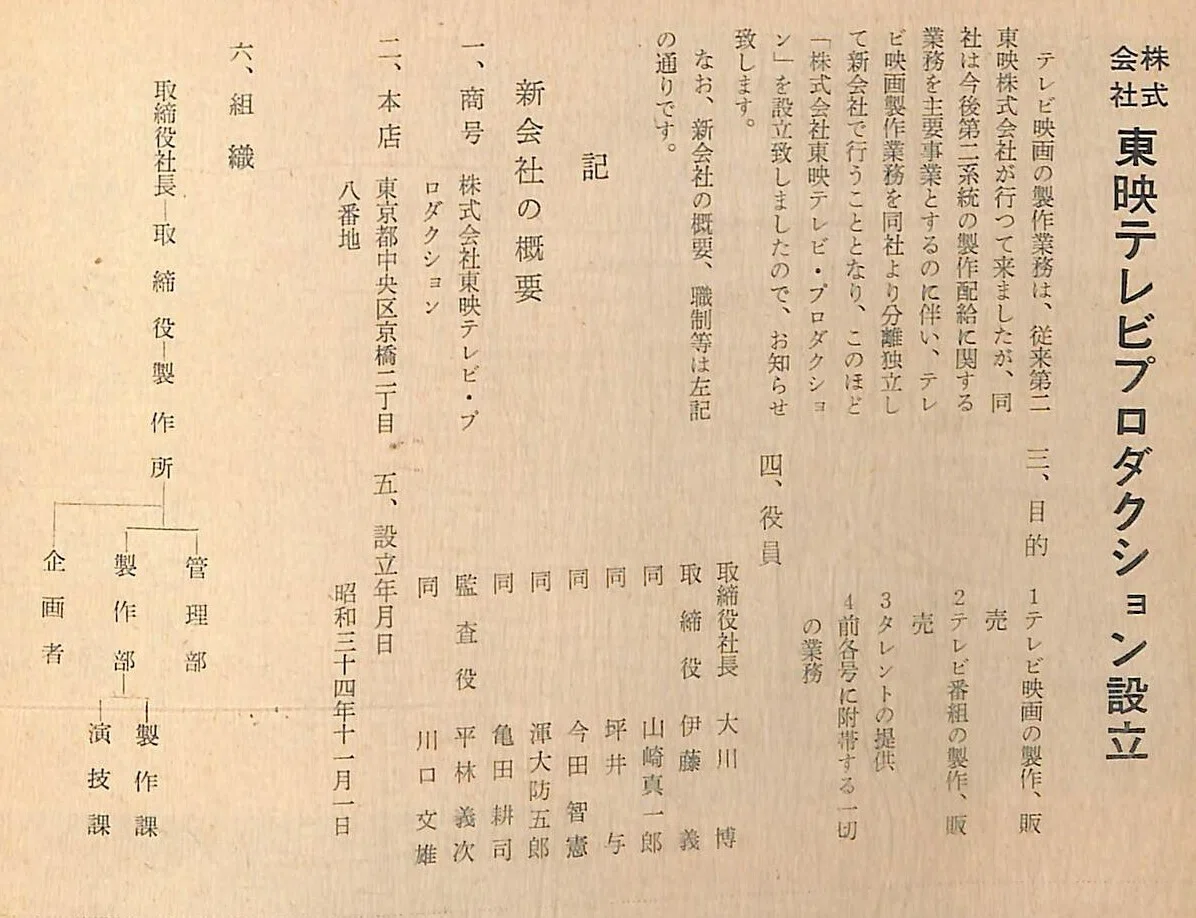 株式会社 東映テレビプロダクション設立
テレビ映画の製作業務は、従来第二
東映株式会社が行つて来ましたが、同
社は今後第二系統の製作配給に関する
業務を主要事業とするのに伴い、テレ
ビ映画製作業務を同社より分離独立し
て新会社で行うこととなり、このほど
「株式会社東映テレビ・プロダクショ
ン」を設立致しましたので、お知らせ
致します。
なお、新会社の概要、職制等は左記
の通りです。
記
新会社の概要
一、商号 株式会社東映テレビ・プ
ロダクション
二、本店 東京都中央区京橋二丁目
八番地
三、目的
1テレビ映画の製作、販
売
2テレビ番組の製作、販
売
3タレントの提供
4前各号に附帯する一切
の業務
四、役員
取締役社長 大川博
取締役 伊藤義
同 山崎真一郎
同 坪井与
同 今田智憲
同 渾大防五郎
同 亀田耕司
監査役 平林義次
同 川口文雄
五、設立年月日
昭和三十四年十一月一日
六、組織
取締役社長―取締役―製作所
管理部
製作部
企画者
製作課
演技課